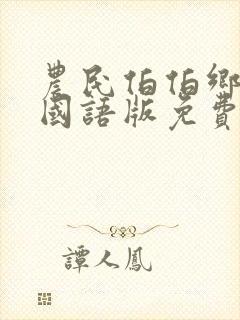 農民伯伯鄉
國語版免費
譚人鳳